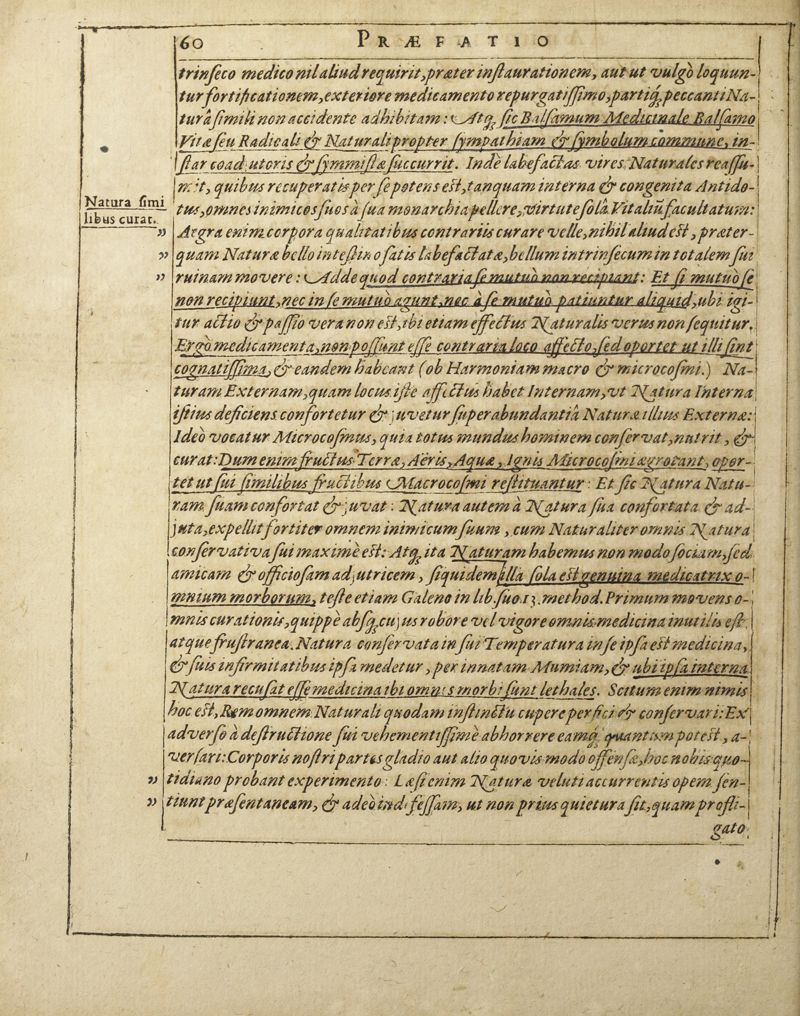 60 PRÆFATIO
trinſeco medico nil aliud requirit, præter inſtaurationem, aut ut vulgò loquun-
tur fortificationem, exteriore medicamento repurgatiſſimo, partiq́; peccanti Na-
turâ ſimili non accidente adhibitam: Atq; ſic Balſamum Medicinale Balſamo
Vitæ ſeu Radicali & Naturali propter ſympathiam & ſymbolum commune, in-
ſtar coadjutoris & ſymmiſtæ ſuccurrit. Inde labefactas vires Naturales reaſſu-
mit, quibus recuperatis per ſe potens eſt, tanquam interna & congenita Antido-
Natura ſimi
libus curat.
tus, omnes inimicos ſuos à ſua monarchia pellere, virtute ſolâ Vitaliũ facultatum:
" Aegra enim corpora qualitatibus contrariis curare velle, nihil aliud eſt, præter-
" quam Naturæ bello inteſtino ſatis labefactatæ, bellum intrinſecum in totalem ſui
" ruinam movere: Adde quod contraria ſe mutuò non recipiant: Et ſi mutuò ſe
non recipiunt, nec in ſe mutuò agunt, nec à ſe mutuò patiuntur aliquid, ubi igi-
tur actio & paſſio vera non eſt, ibi etiam effectus Naturalis verus non ſequitur.
Ergò medicamenta, non poſſunt eſſe contraria loco affecto, ſed oportet ut illi ſint
cognatiſſima, & eandem habeant (ob Harmoniam macro & microcoſmi.) Na-
turam Externam, quam locus iſte affectus habet Internam, vt Natura Interna
iſtius deficiens confortetur & juvetur ſuperabundantiâ Naturæ illius Externæ:
Ideò vocatur Microcoſmus, quia totus mundus hominem conſervat, nutrit, &
curat: Dum enim fructus Terræ, Aëris, Aquæ, Ignis Microcoſmi ægrotant, opor-
tet ut ſui ſimilibus fructibus Macrocoſmi reſtituantur: Et ſic Natura Natu-
ram ſuam confortat & juvat: Natura autem à Natura ſua confortata & ad-
juta, expellit fortiter omnem inimicum ſuum, cum Naturaliter omnis Natura
conſervativa ſui maximè eſt: Atq; ita Naturam habemus non modo ſociam, ſed
amicam & officioſam adjutricem, ſiquidem illa ſola eſt genuina medicatrix o-
mnium morborum, teſte etiam Galeno in lib. ſuo. 13. method. Primum movens o-
mnis curationis, quippè abſq; cujus robore vel vigore omnis medicina inutilis eſt
atque fruſtranea. Natura conſervata in ſui Temperatura in ſe ipſa eſt medicina,
& ſuis infirmitatibus ipſa medetur, per innatam Mumiam, & ubi ipſa interna
Natura recuſat eſſe medicina ibi omnis morbi ſunt lethales. Scitum enim nimis
hoc eſt, Rem omnem Naturali quodam inſtinctu cupere perfici & conſervari: Ex
adverſo à deſtructione ſui vehementiſſimè abhorrere eamq́; quantum poteſt, a-
verſari: Corporis noſtri partes gladio aut alio quovis modo offenſæ, hoc nobis quo-
" tidiano probant experimento: Læſi enim Naturæ veluti accurrentis opem ſen-
" tiunt præſentaneam, & adeò indefeſſam, ut non prius quietura ſit, quam profli-
gato